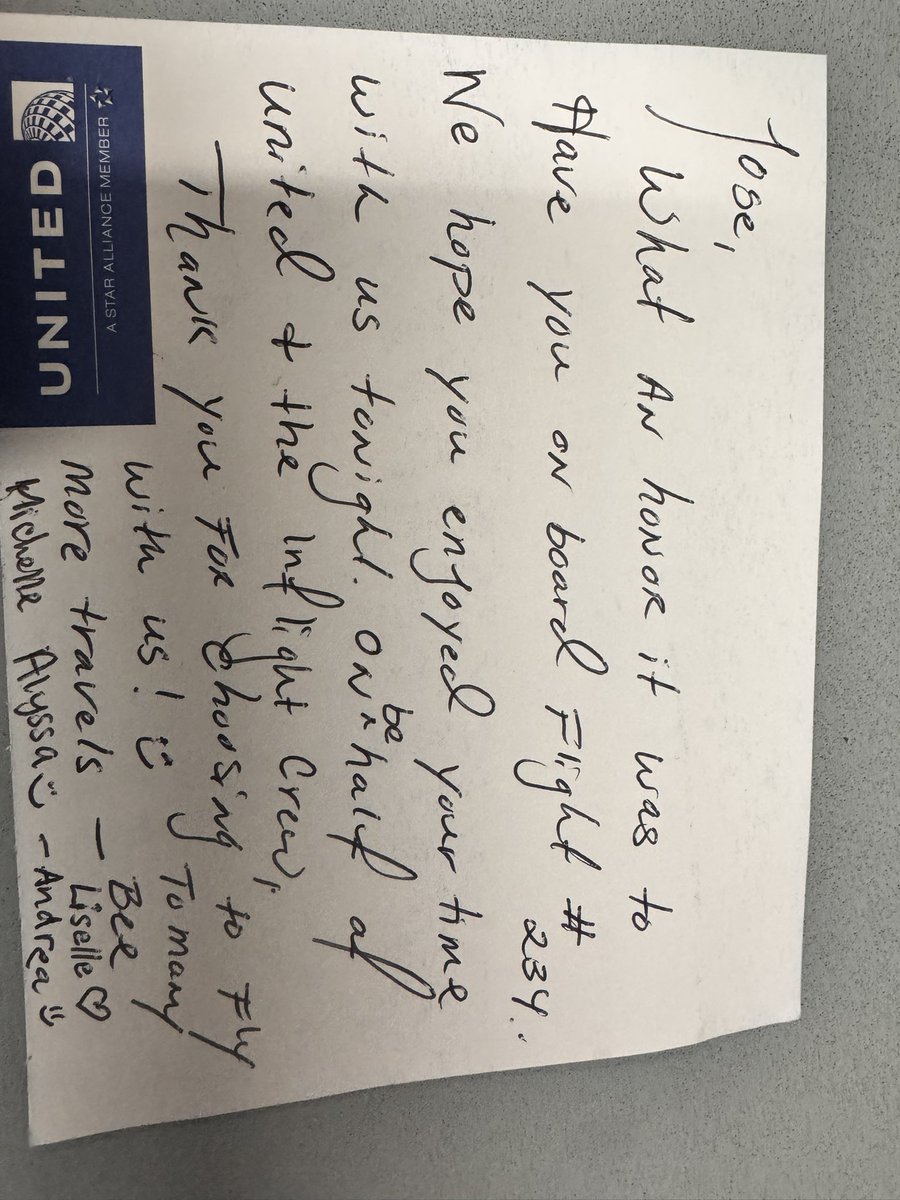 Jose,
What AN honor it was to
Have you on board Flight #
234..
We hope you enjoyed your time
with us tonight. On behalf of
united & the Inflight Crew,
Thank you For choosing to Fly
with us! To many
more travels — Bee
Liselle
Michelle Alyssa - Andrea
UNITED
A STAR ALLIANCE MEMBER